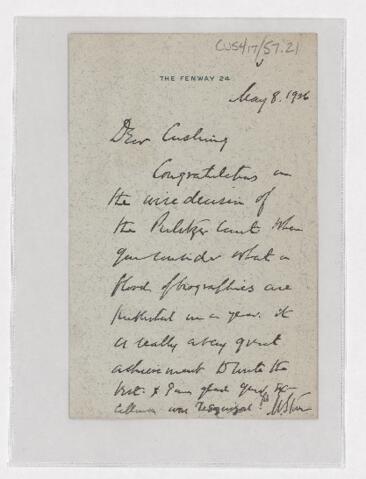 CUS417/57.21
THE FENWAY 24
May 8. 1926
Dear Cushing
Congratulations on
the wise decision of
the Pulitzer Comt. When
you consider what a
flood of biographies are
published in a year. it
is really a very great
achievement to write the
best. & I am glad your ex-
cellence was recognized.